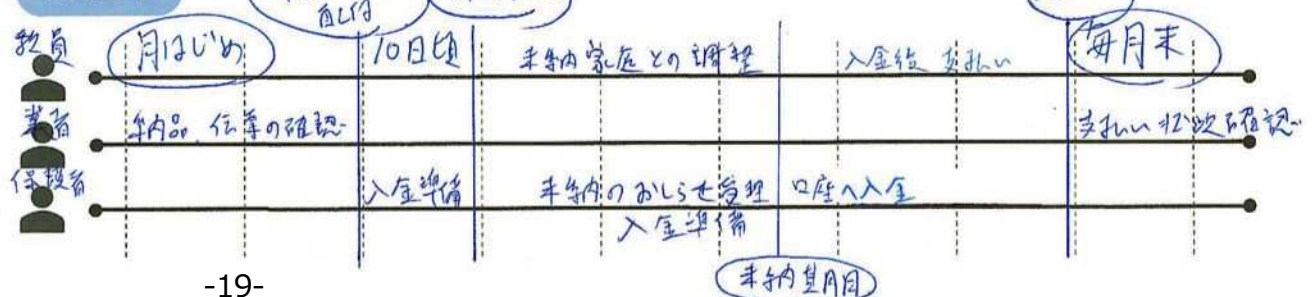 配付
教員
月はじめ
10日頃
未納家庭との調整
入金後 支払い
毎月末
業者
納品、伝票の確認
支払い状況確認
保護者
入金準備
未納のおしらせ受理
口座へ入金
入金準備
未納期日
-19-